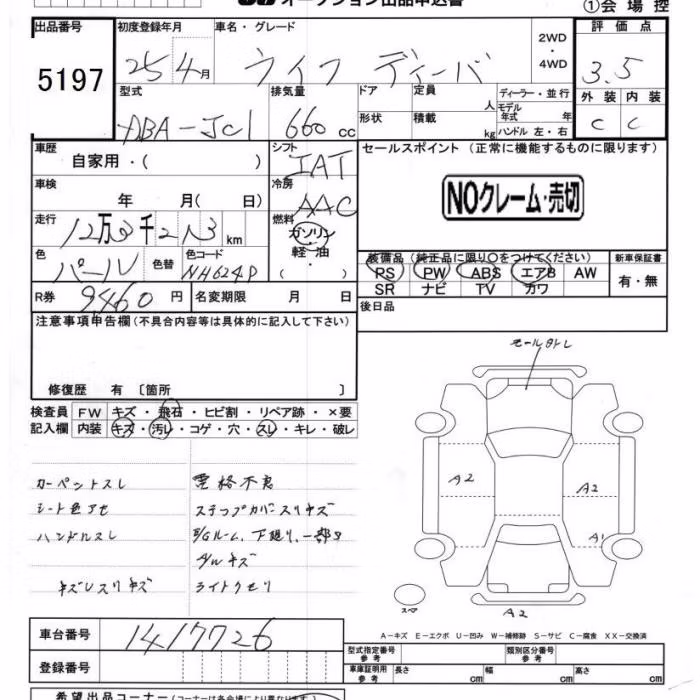 オークション出品申込書
①会場控
出品番号 初度登録年月 車名・グレード 2WD・4WD 評価点
5197 25年4月 ライフ ディーバ 3.5
型式 排気量 ドア 定員 人 ディーラー・並行 外装 内装
DBA-JC1 660cc 形状 積載 kg モデル年式 年 C C
ハンドル 左・右
車歴 シフト セールスポイント (正常に機能するものに限ります)
自家用・( ) IAT
車検 冷房
年 月(日) AAC NOクレーム・売切
走行 燃料
km ガソリン・軽油・
色 色替 色コード 装備品(純正品に限り○をつけてください) 新車保証書
パール NH624P PS PW ABS エアB AW 有・無
SR ナビ TV カワ
R券 9,460円 名変期限 月 日 後日品
注意事項申告欄(不具合内容等は具体的に記入して下さい)
モール外レ
修復歴 有〔箇所 〕
検査員 FW キズ・飛石・ヒビ割・リペア跡・×要
記入欄 内装 キズ・汚レ・コゲ・穴・スレ・キレ・破レ
カーペットスレ
シート色アセ ステップカバースリキズ
ハンドルスレ E/Gルーム、下廻り、一部サ
A/Wキズ
キズレスリキズ ライトクモリ
A2
A2
A1
スペア
A2
A-キズ E-エクボ U-凹み W-補修跡 S-サビ C-腐食 XX-交換済
車台番号 1417726
型式指定番号 参考 類別区分番号 参考
登録番号 車庫証明用 参考 長さ cm 幅 cm 高さ cm
希望出品コーナー